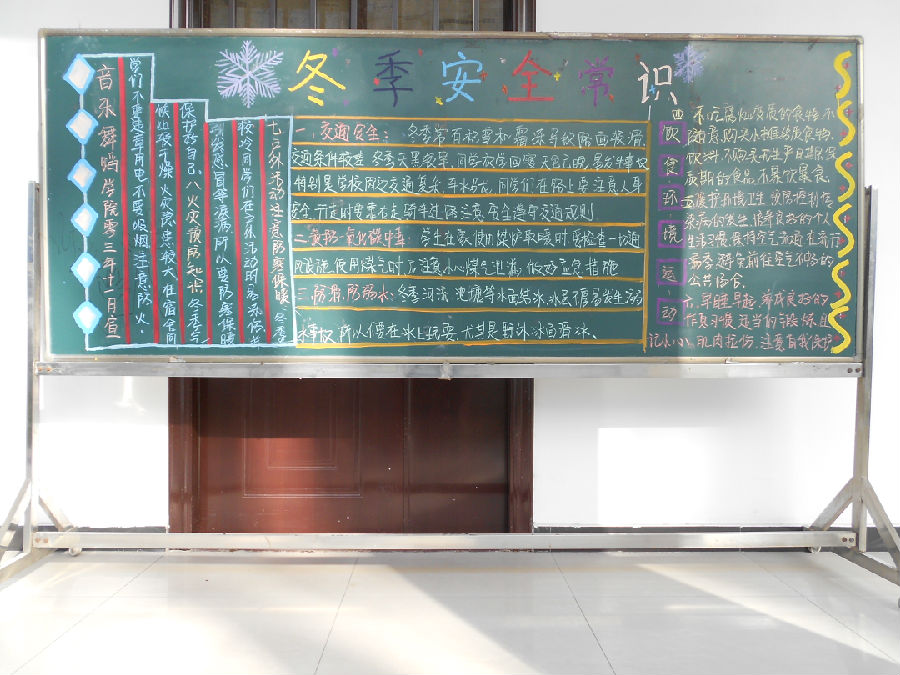 冬季安全常识
一、交通安全：冬季常有积雪和雾霾导致路面装滑,
交通条件较差,冬季天黑较早,同学放学回家天色已晚,易发生事故
特别是学校附近交通复杂,车水马龙,同学们在路上要注意人车
安全,行走时要靠右走,骑车进路注意安全遵守交通规则
二、黄防一氧化碳中毒：学生在家使用煤炉取暖时,要检查一次通
风装置,使用煤气时,应注意小心煤气泄漏,做好应急措施
三、防滑,防溺水：冬季河流,池塘等水面结冰,冰层薄易发生溺
水事故,所以僅在冰上玩耍,尤其是野冰冰面滑冰。
四 饮食环境运动
不吃腐化变质的食物,不
随意购买小摊劣质食物,
饮料,不购买无生产日期,保
质期的食品,不暴饮暴食
五、爱护环境卫生,预防控制传
染病的发生,推荐良好的个人
生活习惯,保持空气流通,在流行
易季避免前往空气不好的
公共场合。
六、早睡早起,养成良好的
作息习惯,适当的锻炼,且
记小心肌肉拉伤,注意自我保护
七、户外活动注意防寒保暖 冬季
较冷,同学们在户外活动时
感冒等疾病,所以要防寒保暖
保护好自己 八、火灾预防知识 冬季气
候比较干燥,火灾隐患较大,在宿舍同
学们不要违章用电,不要吸烟,注意防火。
音乐舞蹈学院零三年十一月宣